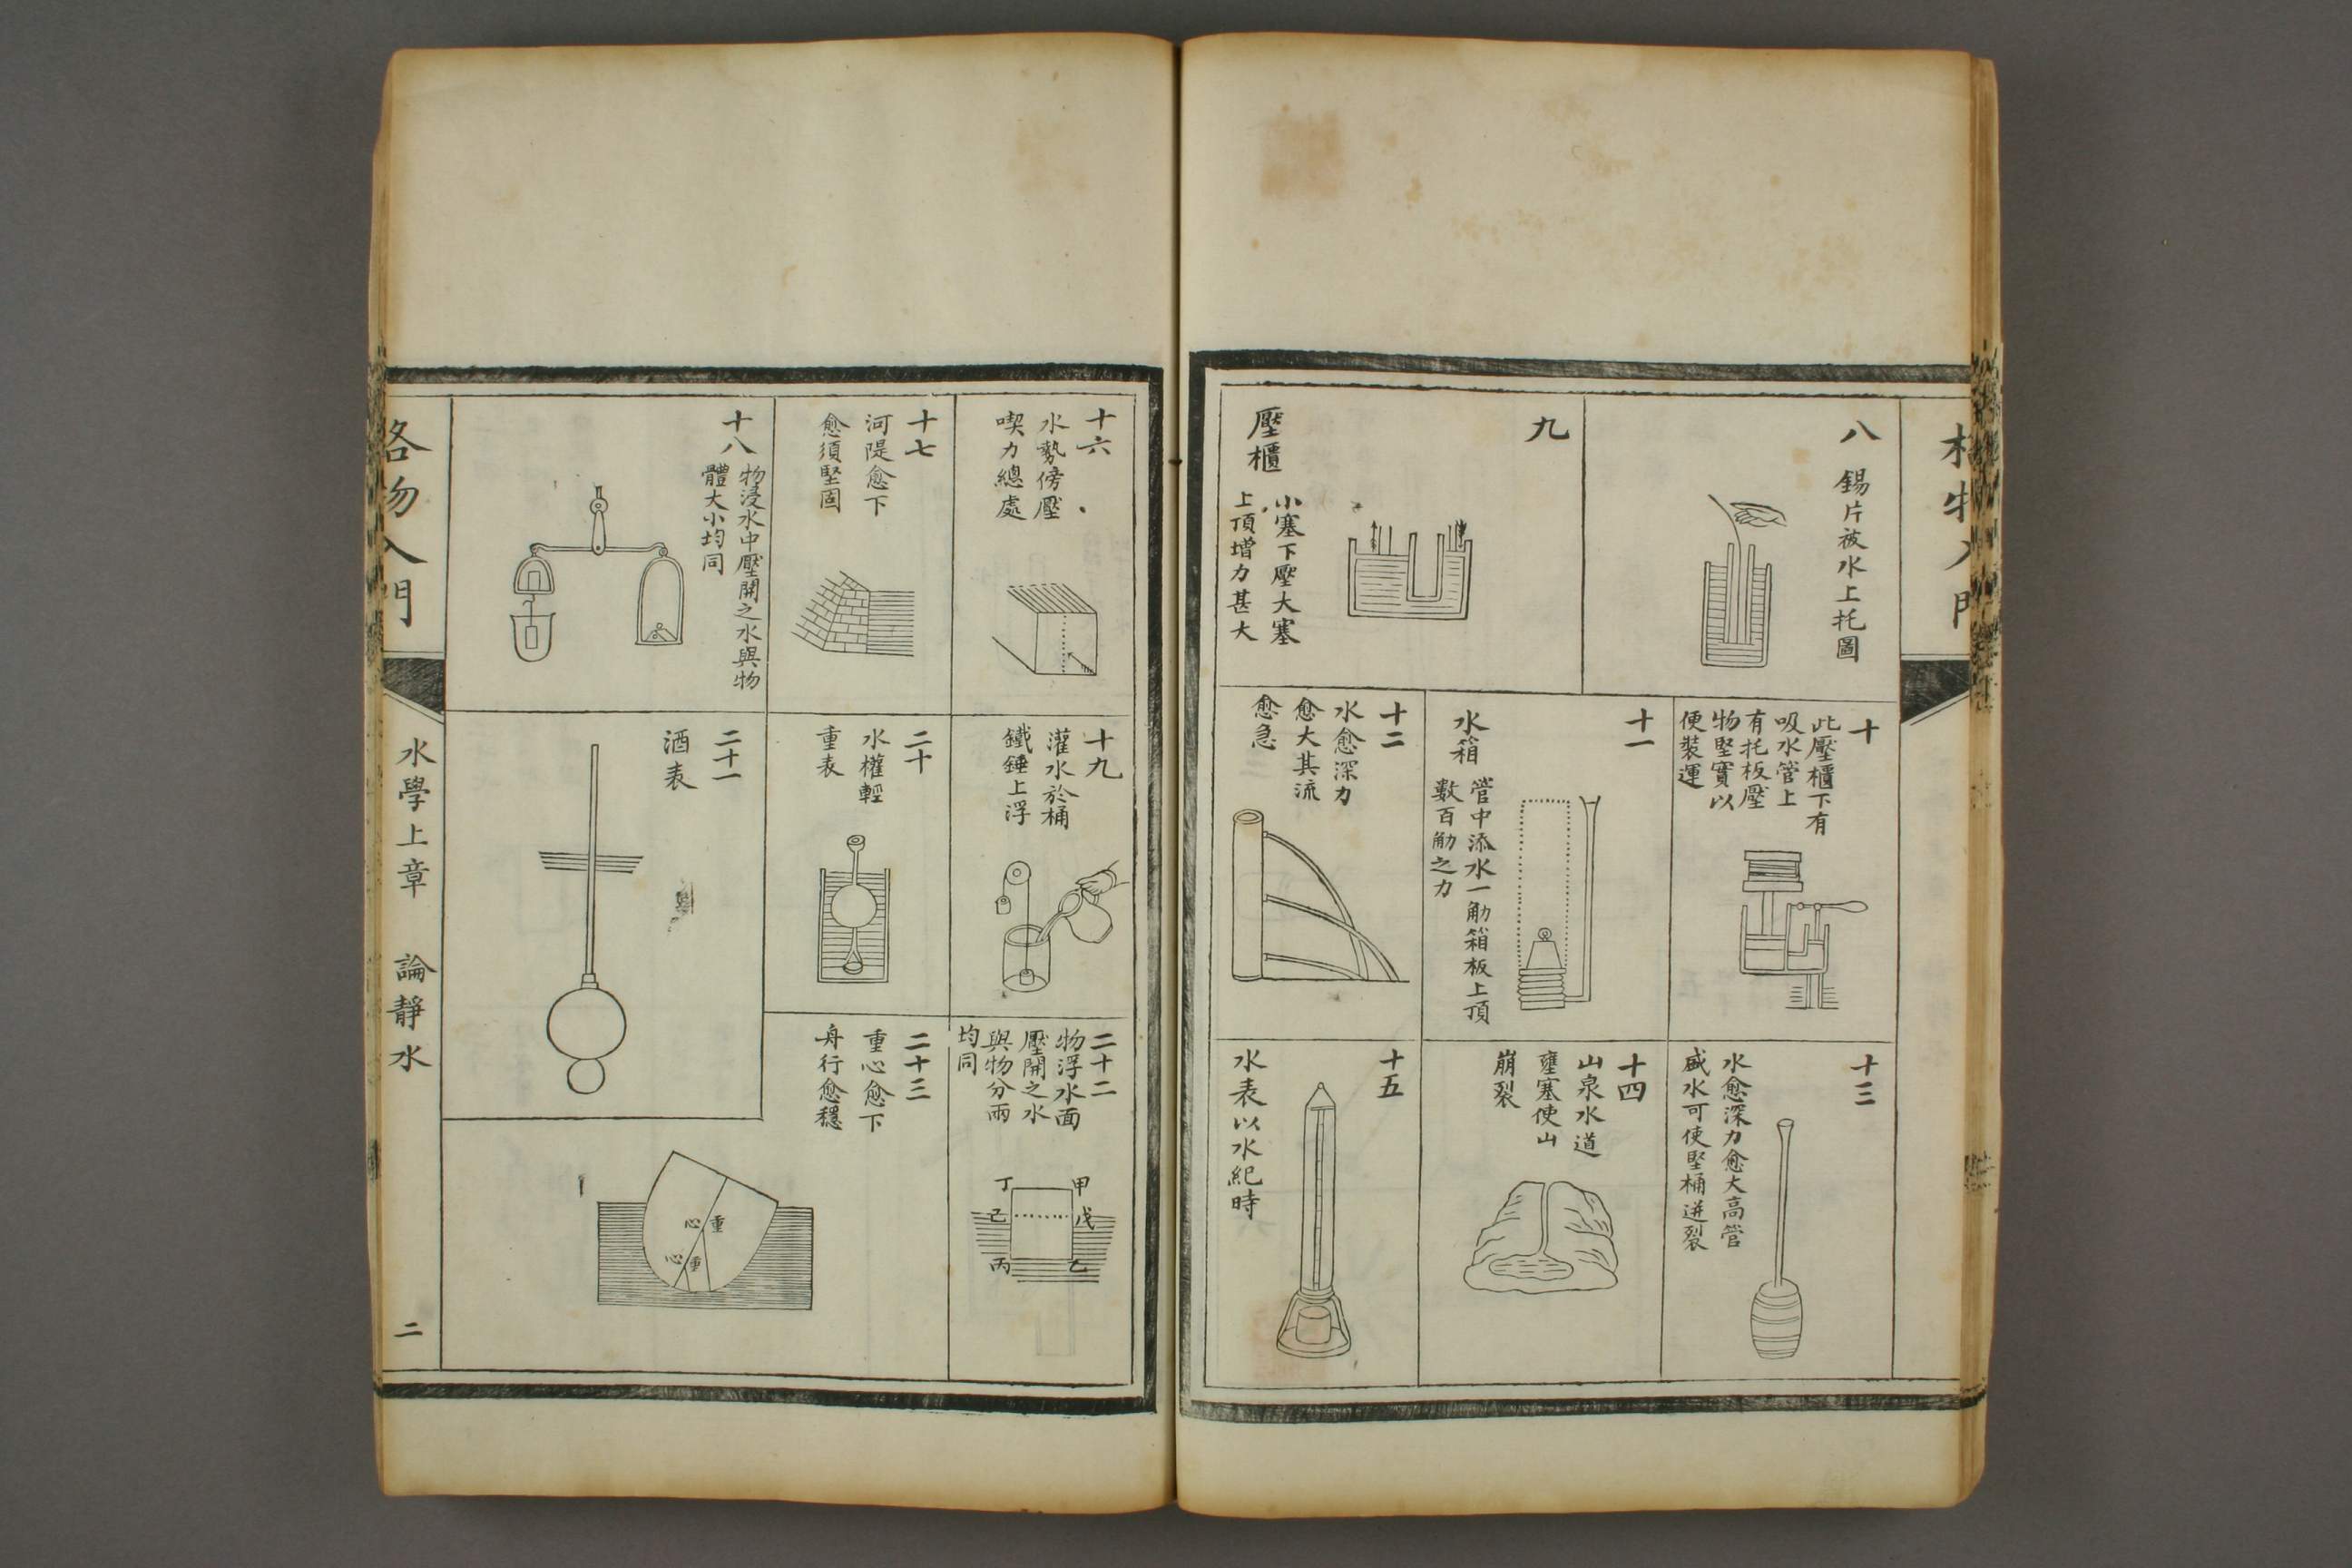 格物入門
八
錫片被水上托圖
九
壓櫃
小塞下壓大塞
上頂增力甚大
十
此壓櫃下有
吸水管上
有托板壓
物堅實以
便裝運
十一
水箱
管中添水一觔箱板上頂
數百觔之力
十二
水愈深力
愈大其流
愈急
十三
水愈深力愈大高管
盛水可使堅桶迸裂
十四
山泉水道
壅塞使山
崩裂
十五
水表以水紀時
十六
水勢傍壓
喫力總處
十七
河隄愈下
愈須堅固
十八
物浸水中壓開之水與物
體大小均同
十九
灌水於桶
鐵錘上浮
二十
水權輕
重表
二十一
酒表
二十二
物浮水面
壓開之水
與物分兩
均同
丁
甲
己
戊
丙
乙
二十三
重心愈下
舟行愈穩
重心
重心
格物入門
水學上章 論靜水
二